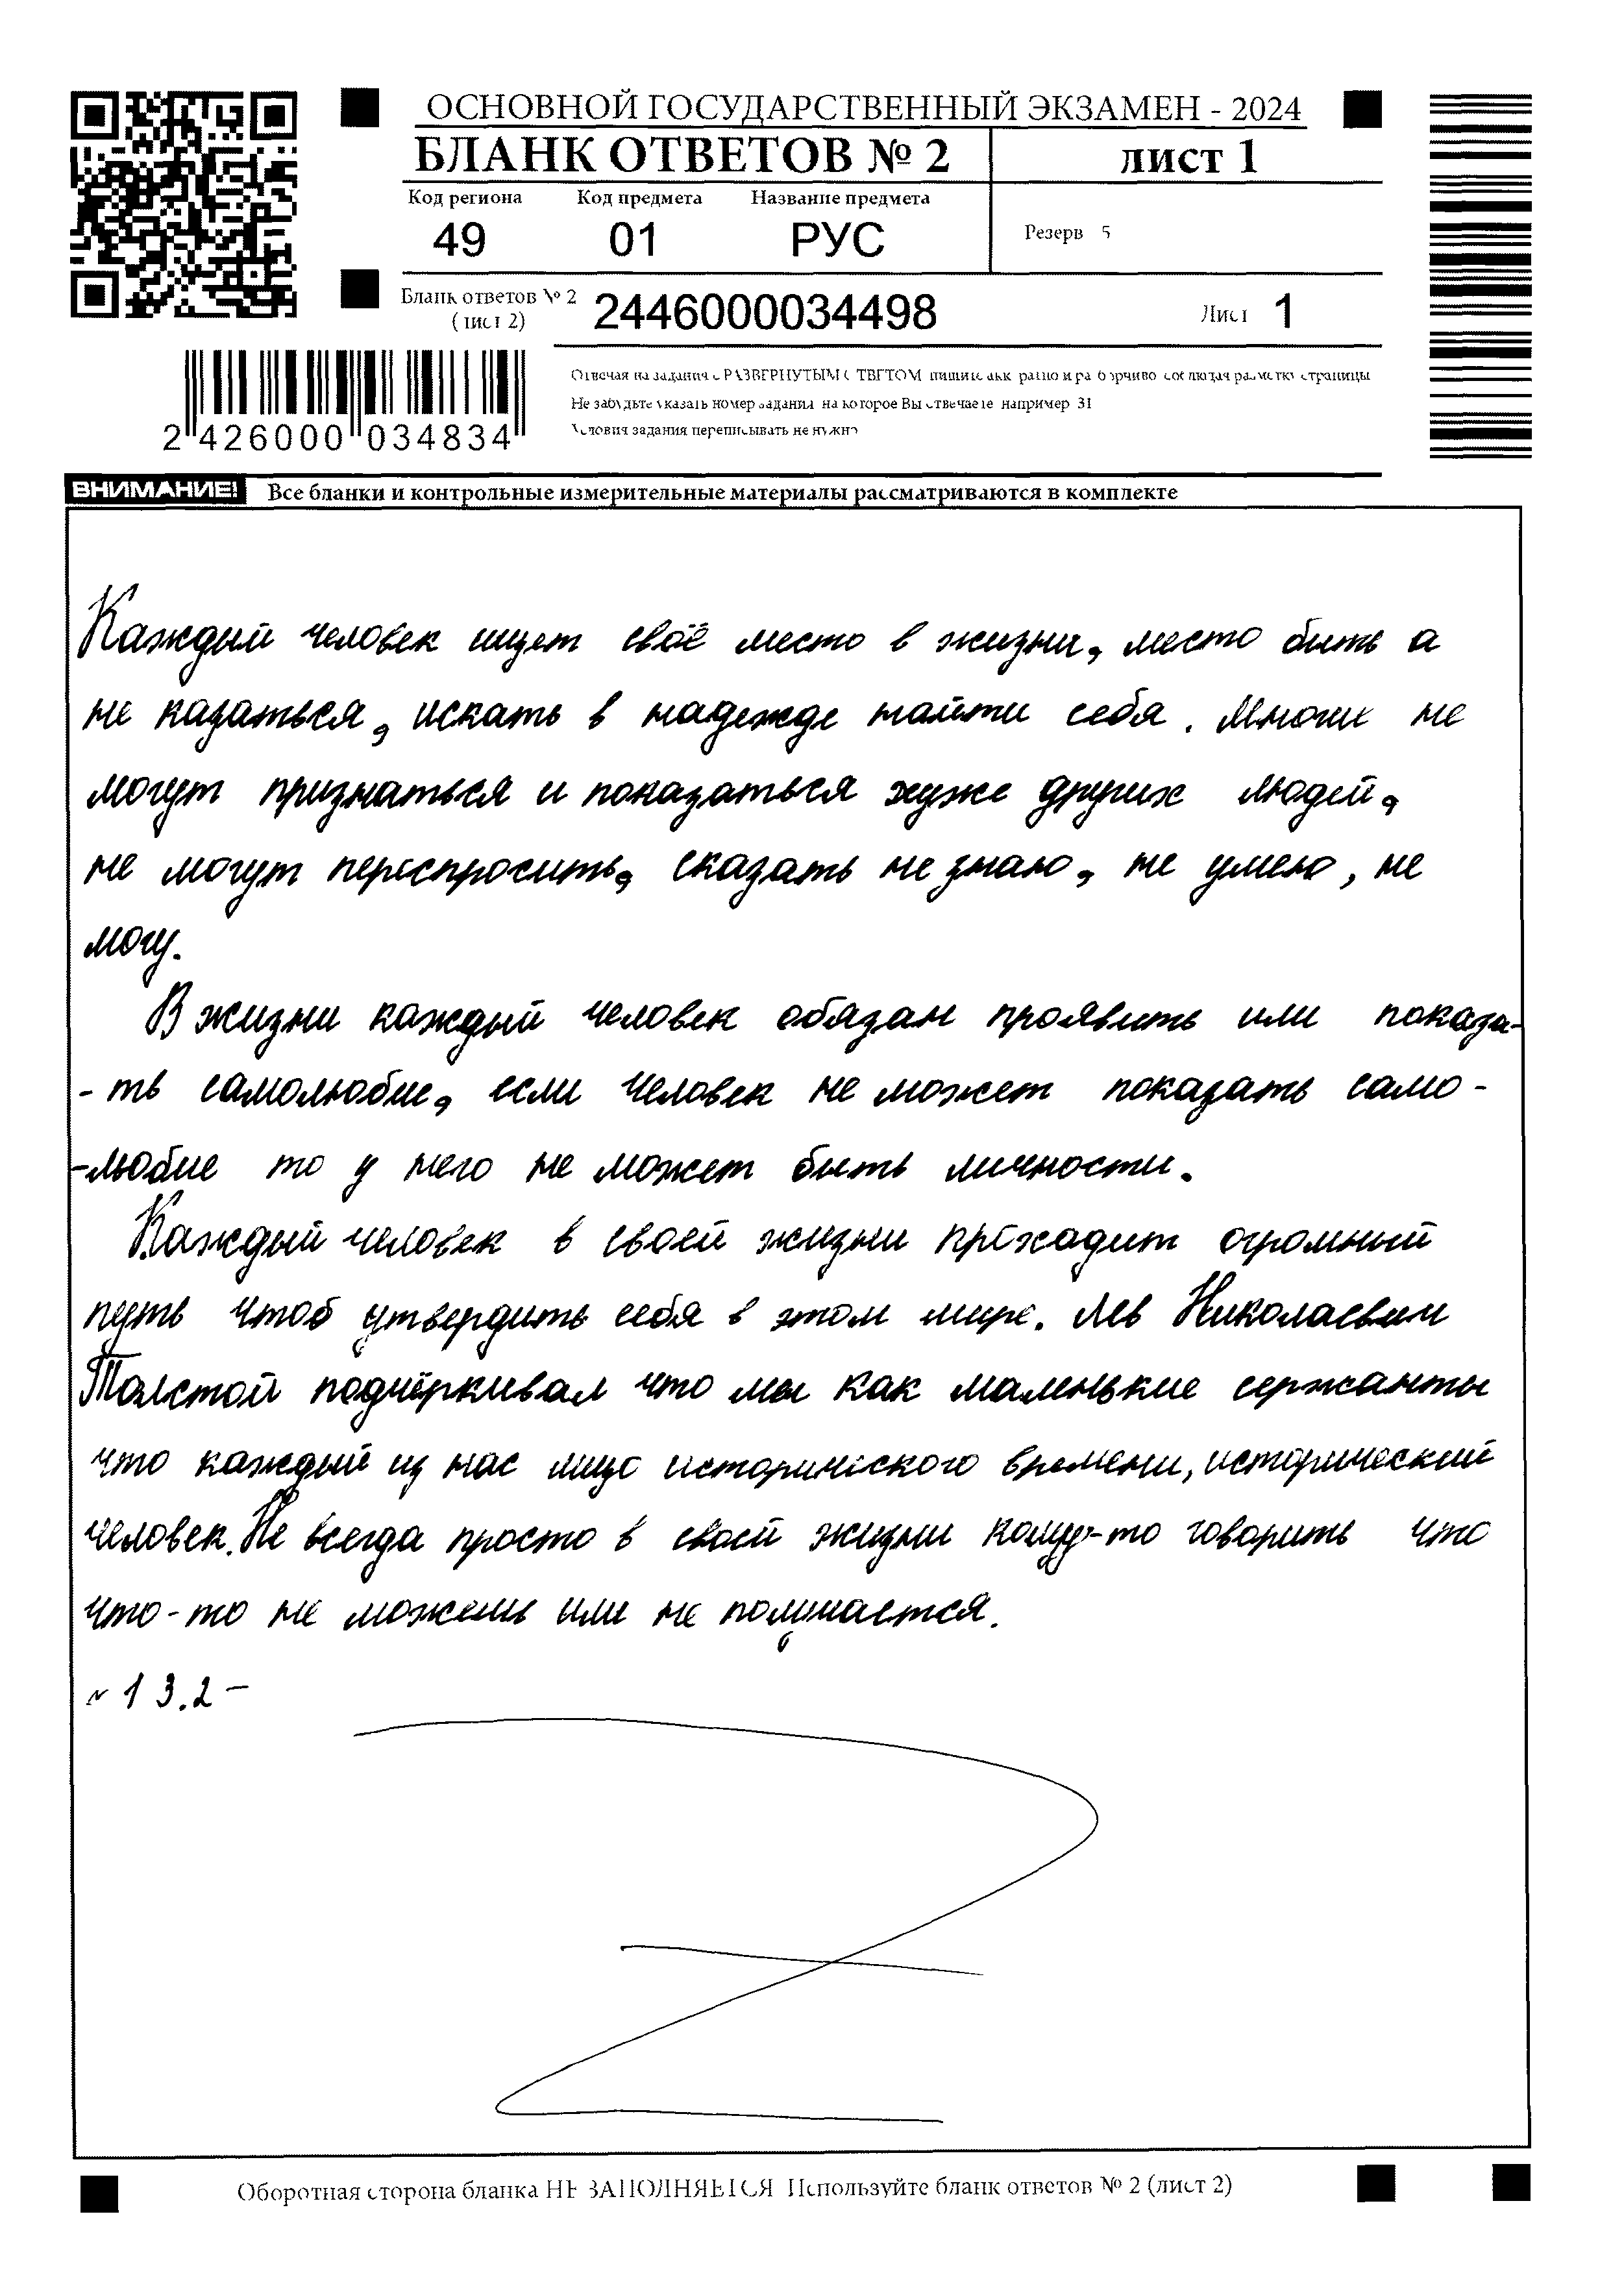 ОСНОВНОЙ ГОСУДАРСТВЕННЫЙ ЭКЗАМЕН - 2024
БЛАНК ОТВЕТОВ № 2
лист 1
Код региона Код предмета Название предмета
49 01 РУС
Резерв 5
Бланк ответов № 2
(лист 2)
2446000034498
Лист 1
2 426000 034834
Отвечая на задания с РАЗВЕРНУТЫМ ОТВЕТОМ пишите аккуратно и разборчиво соблюдая разметку страницы
Не забудьте указать номер задания на которое Вы отвечаете например 31
Условия задания переписывать не нужно
ВНИМАНИЕ! Все бланки и контрольные измерительные материалы рассматриваются в комплекте
Каждый человек ищет своё место в жизни, место быть а
не казаться, искать в надежде найти себя. Многие не
могут признаться и показаться хуже других людей,
не могут переспросить, сказать не знаю, не умею, не
могу.
В жизни каждый человек обязан проявить или показа-
- ть самолюбие, если человек не может показать само -
-любие то у него не может быть личности.
Каждый человек в своей жизни прохадит огромный
путь чтоб утвердить себя в этом мире. Лев Николаевич
Толстой подчёркивал что мы как маленькие сержанты
что каждый из нас лицо исторического времени, исторический
человек. Не всегда просто в своей жизни кому-то говорить что
что-то не можешь или не полущается.
№ 13.2 –
Оборотная сторона бланка НЕ ЗАПОЛНЯЕТСЯ Используйте бланк ответов № 2 (лист 2)